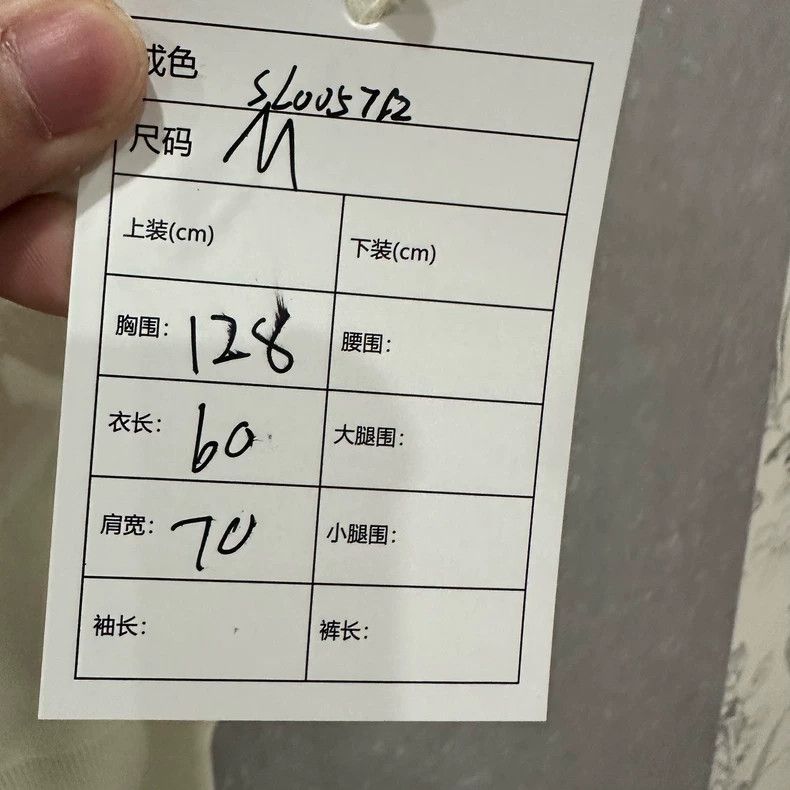 成色
SL005712
尺码 M
上装(cm) 下装(cm)
胸围: 128 腰围:
衣长: 60 大腿围:
肩宽: 70 小腿围:
袖长: 裤长: